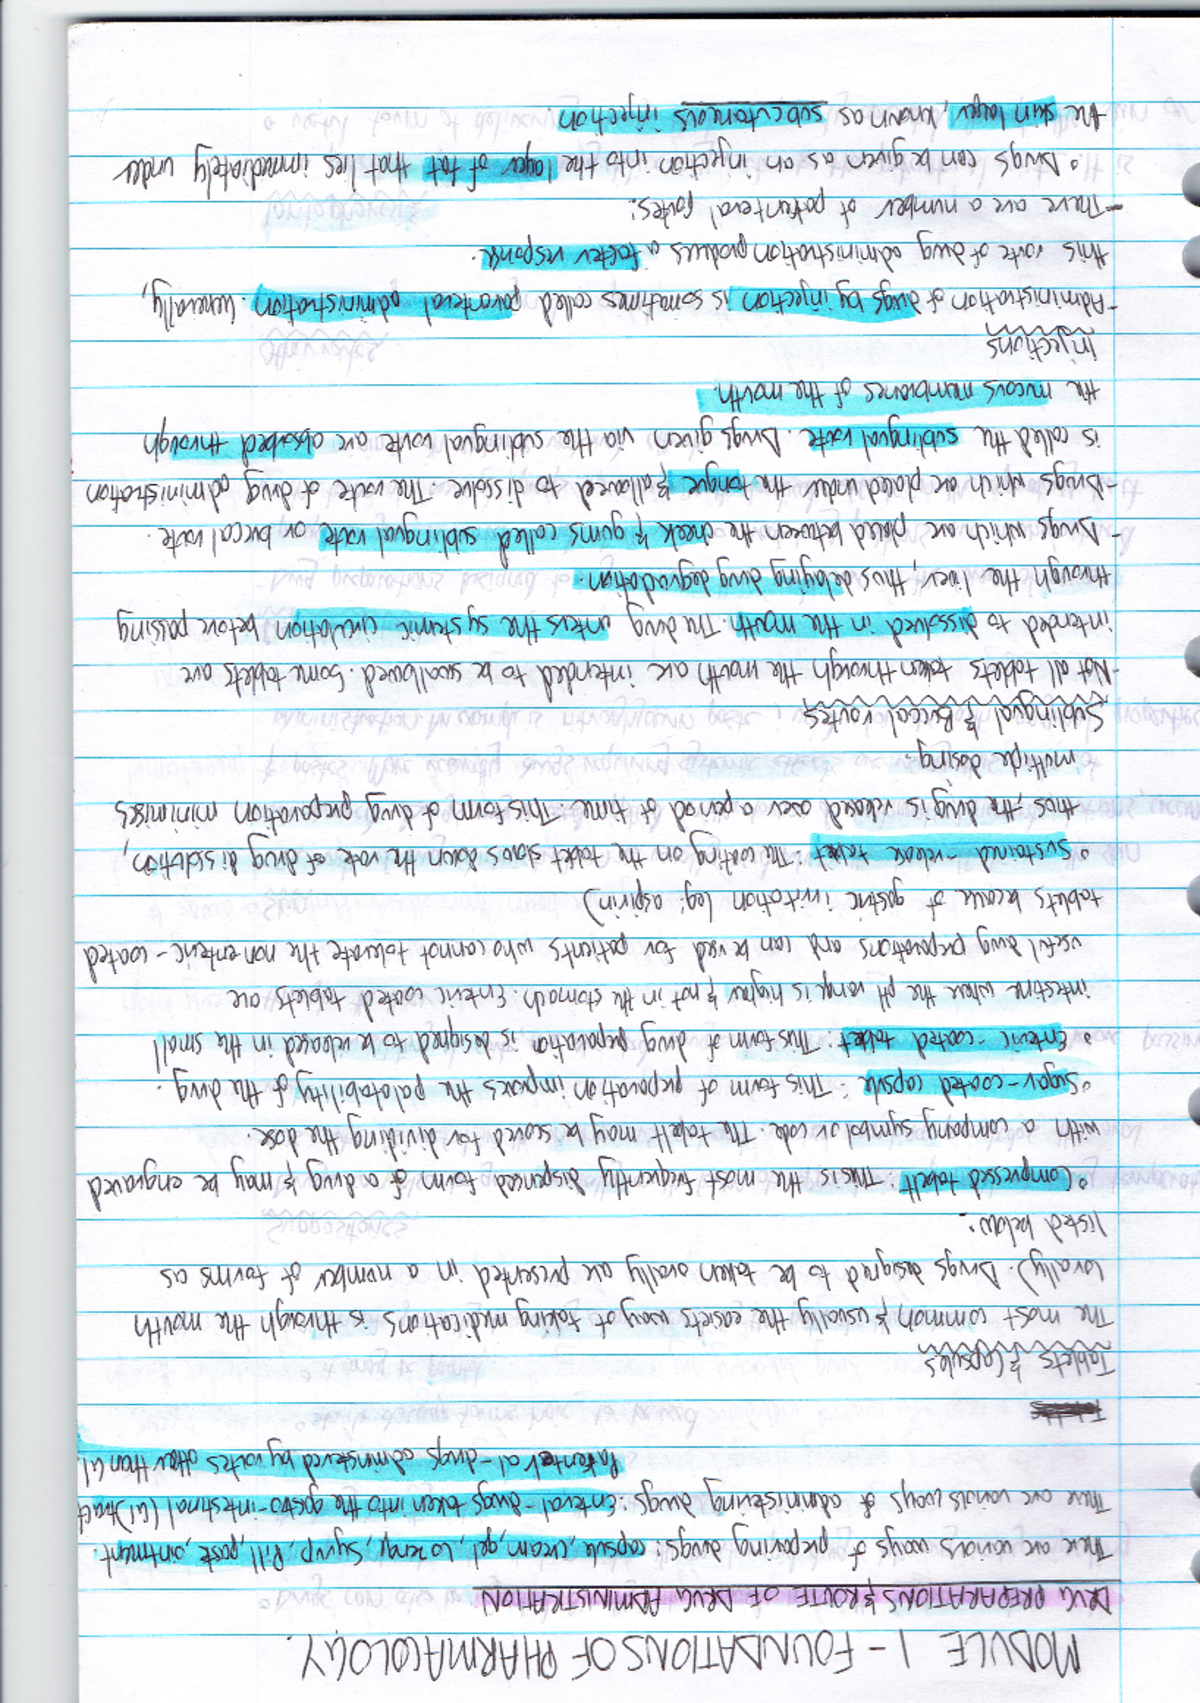 MODULE 1 - FOUNDATIONS OF PHARMACOLOGY.
DRUG PREPARATIONS & ROUTE OF DRUG ADMINISTRATION
There are various ways of preparing drugs: capsule, cream, gel, lozenge, syrup, pill, paste, ointment.
There are various ways of administering drugs: Enteral - drugs taken into the gastro-intestinal (GI) tract
Parenteral - drugs administered by routes other than GI.
Tablets & Capsules
The most common & usually the easiets way of taking medications is through the mouth
(orally). Drugs designed to be taken orally are presented in a number of forms as
listed below:
• Compressed tablett: This is the most frequently dispensed form of a drug & may be engraved
with a company symbol or code. The tablett may be scored for dividing the dose.
• Sugar-coated capsule: This form of preparation improves the palatability of the drug.
• Enteric-coated tablet: This form of drug preparation is designed to be released in the small
intestine where the pH range is higher & not in the stomach. Enteric coated tablets are
useful drug preparations and can be used for patients who cannot tolerate the non enteric-coated
tablets because of gastric irritation (eg: aspirin)
• Sustained-release tablet: The coating on the tablet slows down the rate of drug dissolution,
thus, the drug is released over a period of time. This form of drug preparation minimises
multiple dosing.
Sublingual & Buccal routes
- Not all tablets taken through the mouth are intended to be swallowed. Some tablets are
intended to dissolved in the mouth. The drug enters the systemic circulation before passing
through the liver, thus delaying drug degradation.
- Drugs which are placed between the cheek & gums called sublingual route or buccal route.
- Drugs which are placed under the tongue & allowed to dissolve. The route of drug administration
is called the sublingual route. Drugs given via the sublingual route are absorbed through
the mucous membranes of the mouth.
Injections
- Administration of drugs by injection is sometimes called parenteral administration. Generally,
this route of drug administration produces a faster response.
- There are a number of parenteral routes:
• Drugs can be given as an injection into the layer of fat that lies immediately under
the skin layer, known as subcutaneous injection.